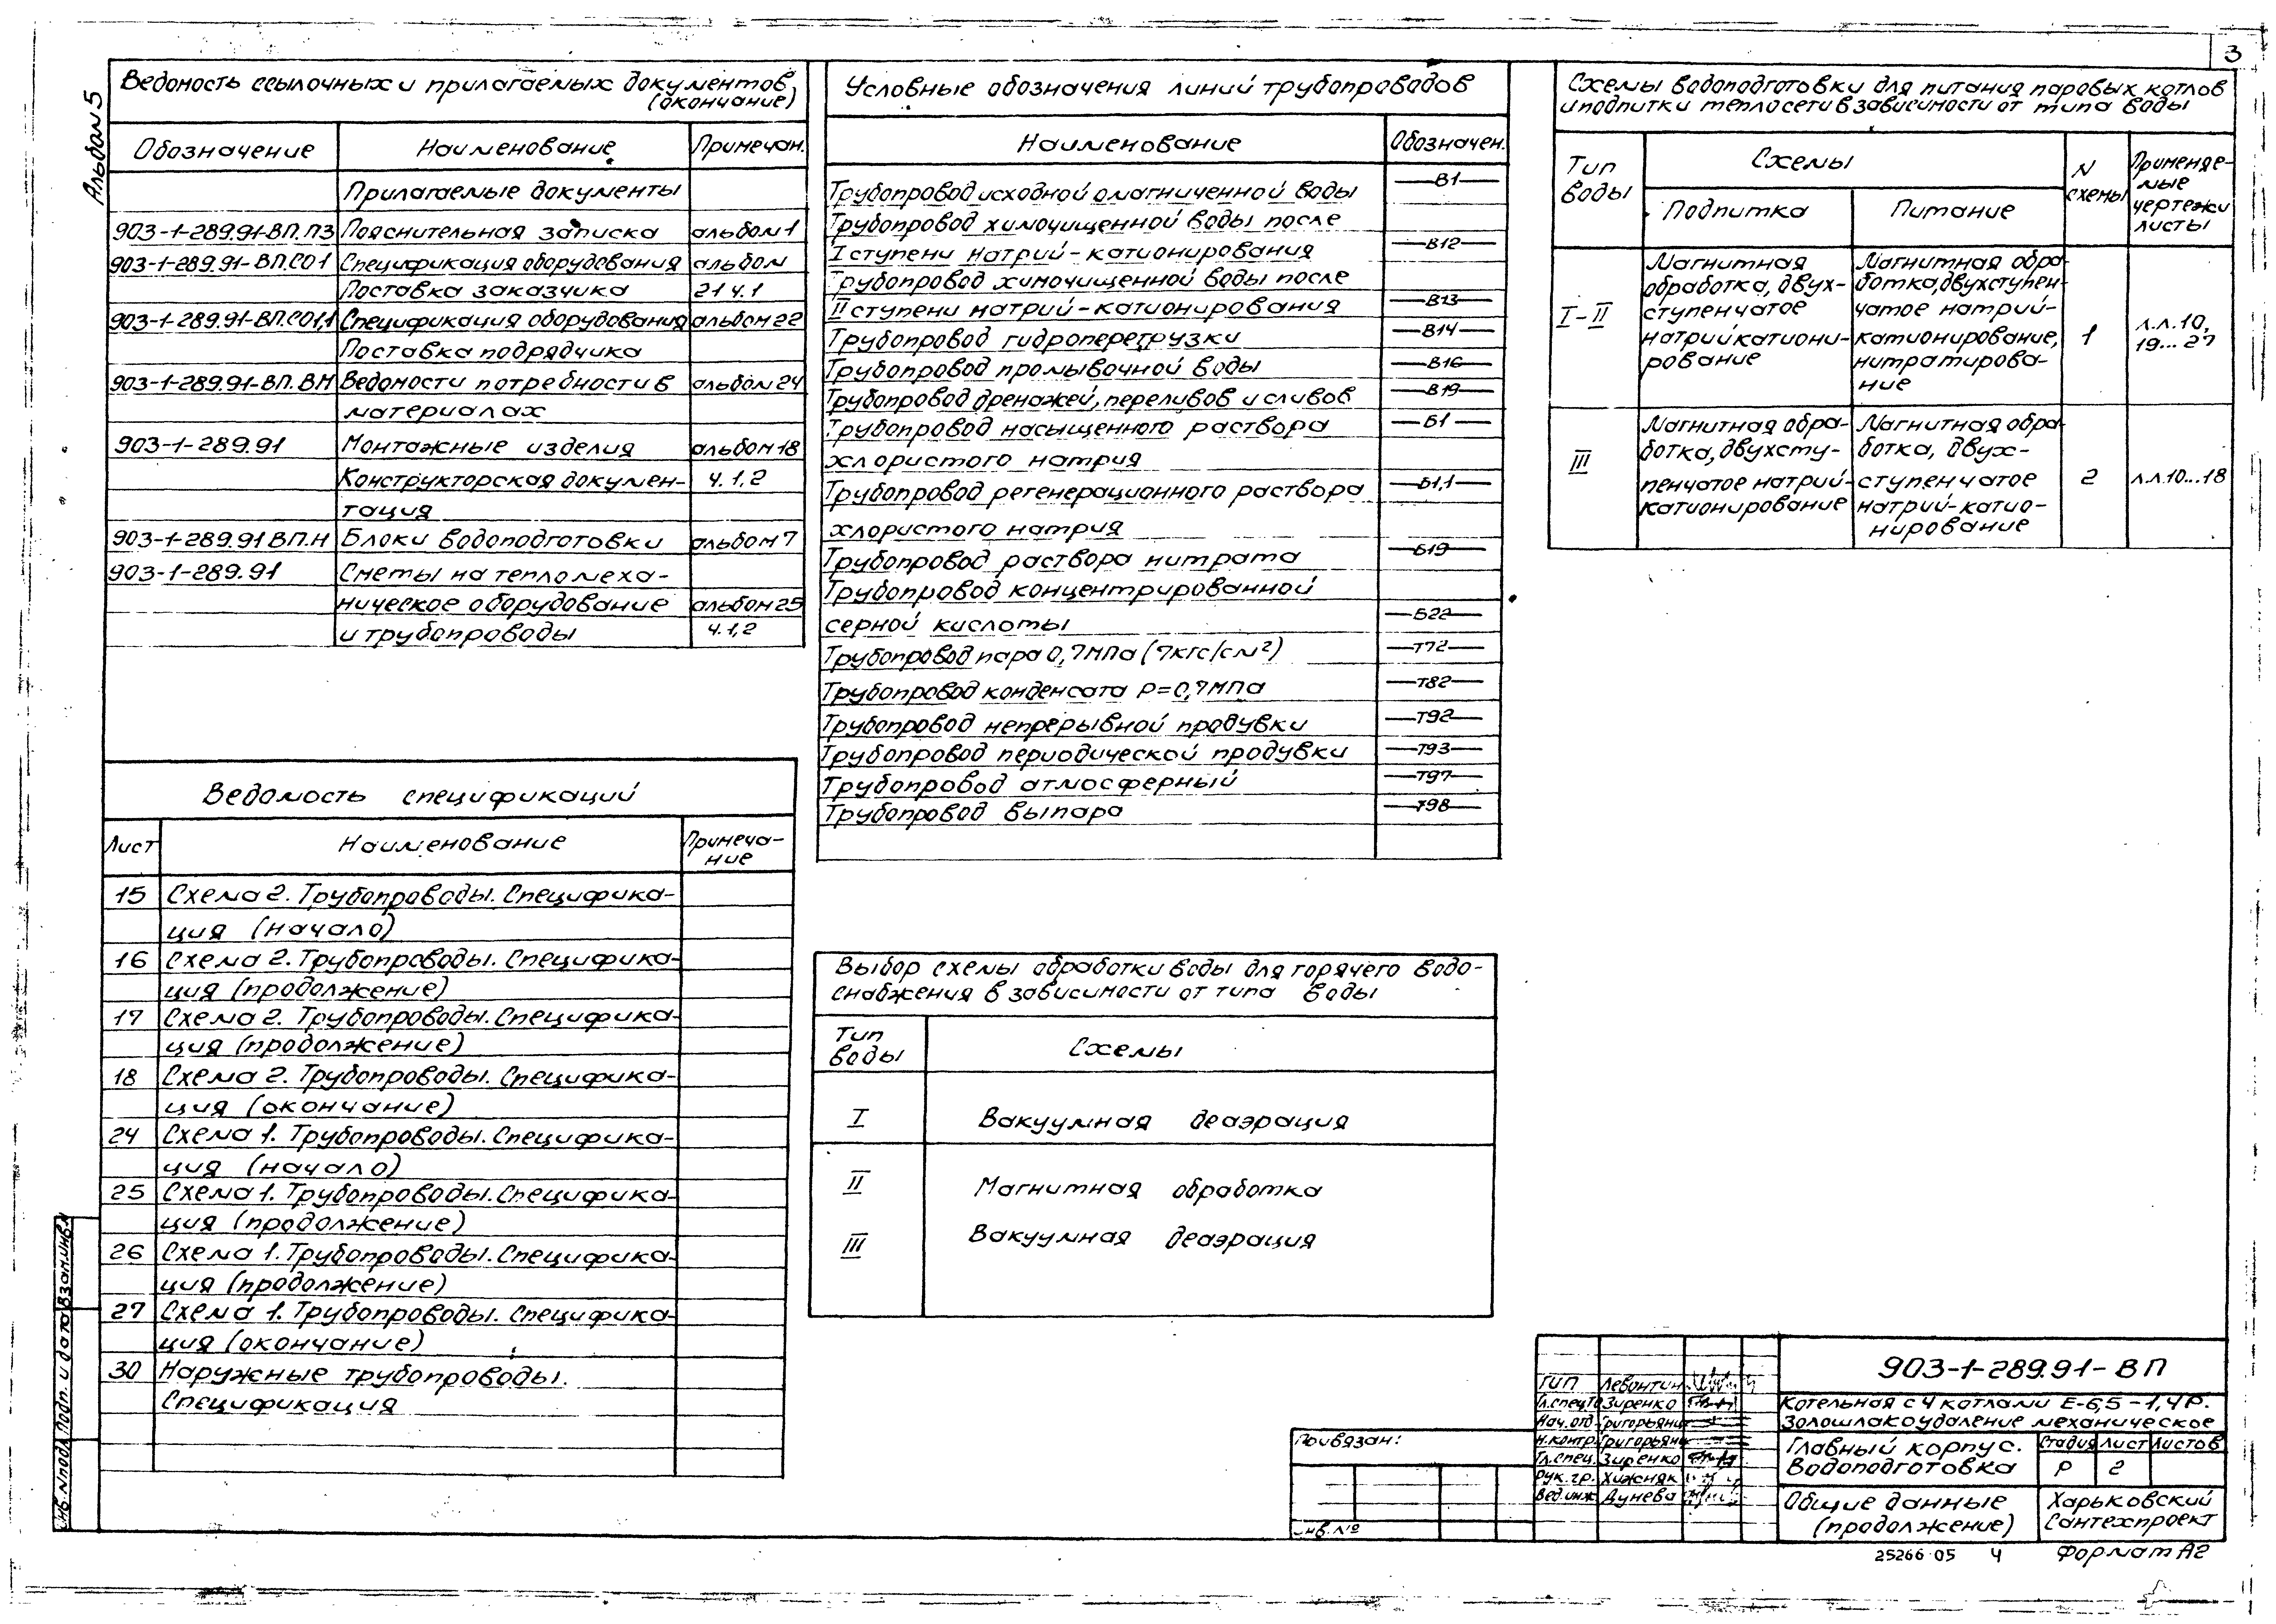 3
Альбом 5
Ведомость ссылочных и прилагаемых документов
(окончание)
Обозначение Наименование Примечан.
Прилагаемые документы
903-1-289.91-ВП.ПЗ Пояснительная записка альбом 1
903-1-289.91-ВП.СО1 Спецификация оборудования альбом
Поставка заказчика 21 ч.1
903-1-289.91-ВП.СО1,1 Спецификация оборудования альбом 22
Поставка подрядчика
903-1-289.91-ВП.ВМ Ведомости потребности в альбом 24
материалах
903-1-289.91 Монтажные изделия альбом 18
Конструкторская докумен- ч.1,2
тация
903-1-289.91 ВП.Н Блоки водоподготовки альбом 7
903-1-289.91 Сметы на тепломеха-
ническое оборудование альбом 25
и трубопроводы ч.1,2
Ведомость спецификаций
Лист Наименование Примеча-
ние
15 Схема 2. Трубопроводы. Специфика-
ция (начало)
16 Схема 2. Трубопроводы. Специфика-
ция (продолжение)
17 Схема 2. Трубопроводы. Специфика-
ция (продолжение)
18 Схема 2. Трубопроводы. Специфика-
ция (окончание)
24 Схема 1. Трубопроводы. Специфика-
ция (начало)
25 Схема 1. Трубопроводы. Специфика-
ция (продолжение)
26 Схема 1. Трубопроводы. Специфика-
ция (продолжение)
27 Схема 1. Трубопроводы. Специфика-
ция (окончание)
30 Наружные трубопроводы.
Спецификация
Условные обозначения линий трубопроводов
Наименование Обозначен.
Трубопровод исходной омагниченной воды В1
Трубопровод химочищенной воды после
I ступени натрий-катионирования В12
Трубопровод химочищенной воды после
II ступени натрий-катионирования В13
Трубопровод гидроперегрузки В14
Трубопровод промывочной воды В16
Трубопровод дренажей, переливов и сливов В19
Трубопровод насыщенного раствора Б1
хлористого натрия
Трубопровод регенерационного раствора Б1,1
хлористого натрия
Трубопровод раствора нитрата Б19
Трубопровод концентрированной
серной кислоты Б22
Трубопровод пара 0,7МПа (7кгс/см²) Т72
Трубопровод конденсата Р=0,7МПа Т82
Трубопровод непрерывной продувки Т92
Трубопровод периодической продувки Т93
Трубопровод атмосферный Т97
Трубопровод выпара Т98
Выбор схемы обработки воды для горячего водо-
снабжения в зависимости от типа воды
Тип
воды Схемы
I Вакуумная деаэрация
II Магнитная обработка
III Вакуумная деаэрация
Схемы водоподготовки для питания паровых котлов
и подпитки теплосети в зависимости от типа воды
Тип
воды
Схемы
Подпитка Питание
N
схемы
Применяе-
мые
чертежи
листы
I-II
Магнитная
обработка, двух-
ступенчатое
натрийкатиони-
рование
Магнитная обра-
ботка, двухступен-
чатое натрий-
катионирование,
нитратирова-
ние
1
л.л.10,
19...27
III
Магнитная обра-
ботка, двухсту-
пенчатое натрий-
катионирование
Магнитная обра-
ботка, двух-
ступенчатое
натрий-катио-
нирование
2
л.л.10...18
Инв.Nподл. Подп. и дата Взам.инв.N
Привязан:
Инв.№
ГИП Левантин
Гл.спецТО Зиренко
Нач.отд Григорьянц
Н.контр Григорьянц
Гл.спец. Зиренко
Рук.гр. Хижняк
Вед.инж Дунева
903-1-289.91-ВП
Котельная с 4 котлами Е-6,5-1,4Р.
Золошлакоудаление механическое
Главный корпус.
Водоподготовка
Стадия Лист Листов
Р 2
Общие данные
(продолжение)
Харьковский
Сантехпроект
25266-05 4 Формат А2